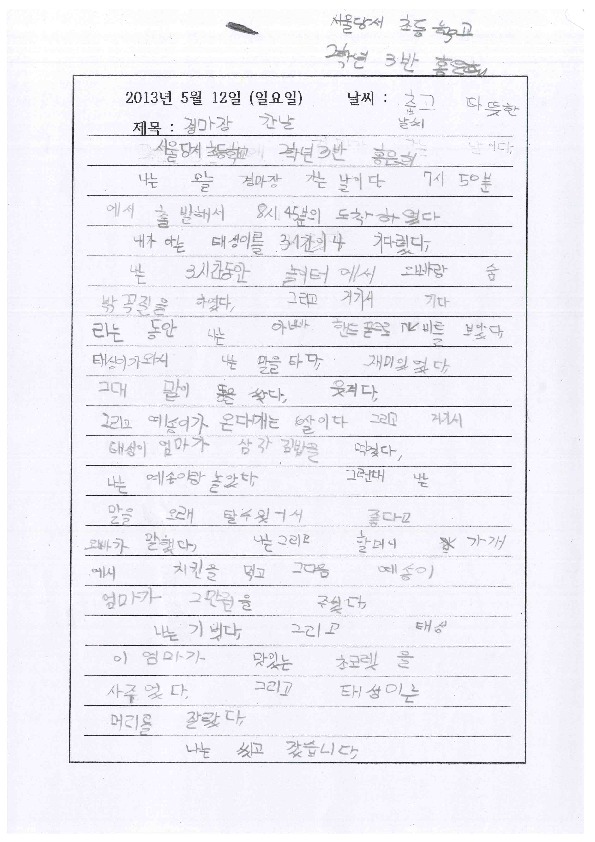 서울당서 초등 학교
2학년 3반 홍은희
2013년 5월 12일 (일요일) 날씨 : 춥고 따뜻한
제목 : 경마장 간날 날씨
서울당서 초등학교 2학년 3반 홍은희
나는 오늘 경마장 가는 날이다 7시 50분
에서 출발해서 8시 45분의 도착하였다
내가 아는 태성이를 3시간이나 기다렸다,
나는 3시간동안 놀이터에서 오빠랑 숨
밖꼭질을 하였다, 그리고 거기서 기다
리는 동안 나는 아빠 핸드폰으로 TV비를 보았다
태성이가 와서 나는 말을 타다, 재미있었다,
그대 말이 똥을 쌌다, 웃겨다,
그리고 예송이가 온다 6살이다 그리고 거기서
태성이 엄마가 삼각 김밥을
나는 예송이랑 놀았다 그런대 나는
말을 오래 탈수있거서 좋다고
오빠가 말했다, 나는 그리고 할머니 가개
에서 치킨을 먹고 그다음 예송이
엄마가 그만큼을 주셨다,
나는 기뻤다, 그리고 태성
이 엄마가 맛있는 초코렛을
사주었다, 그리고 태성이는
머리를 잘랐다,
나는 씻고 잤습니다,